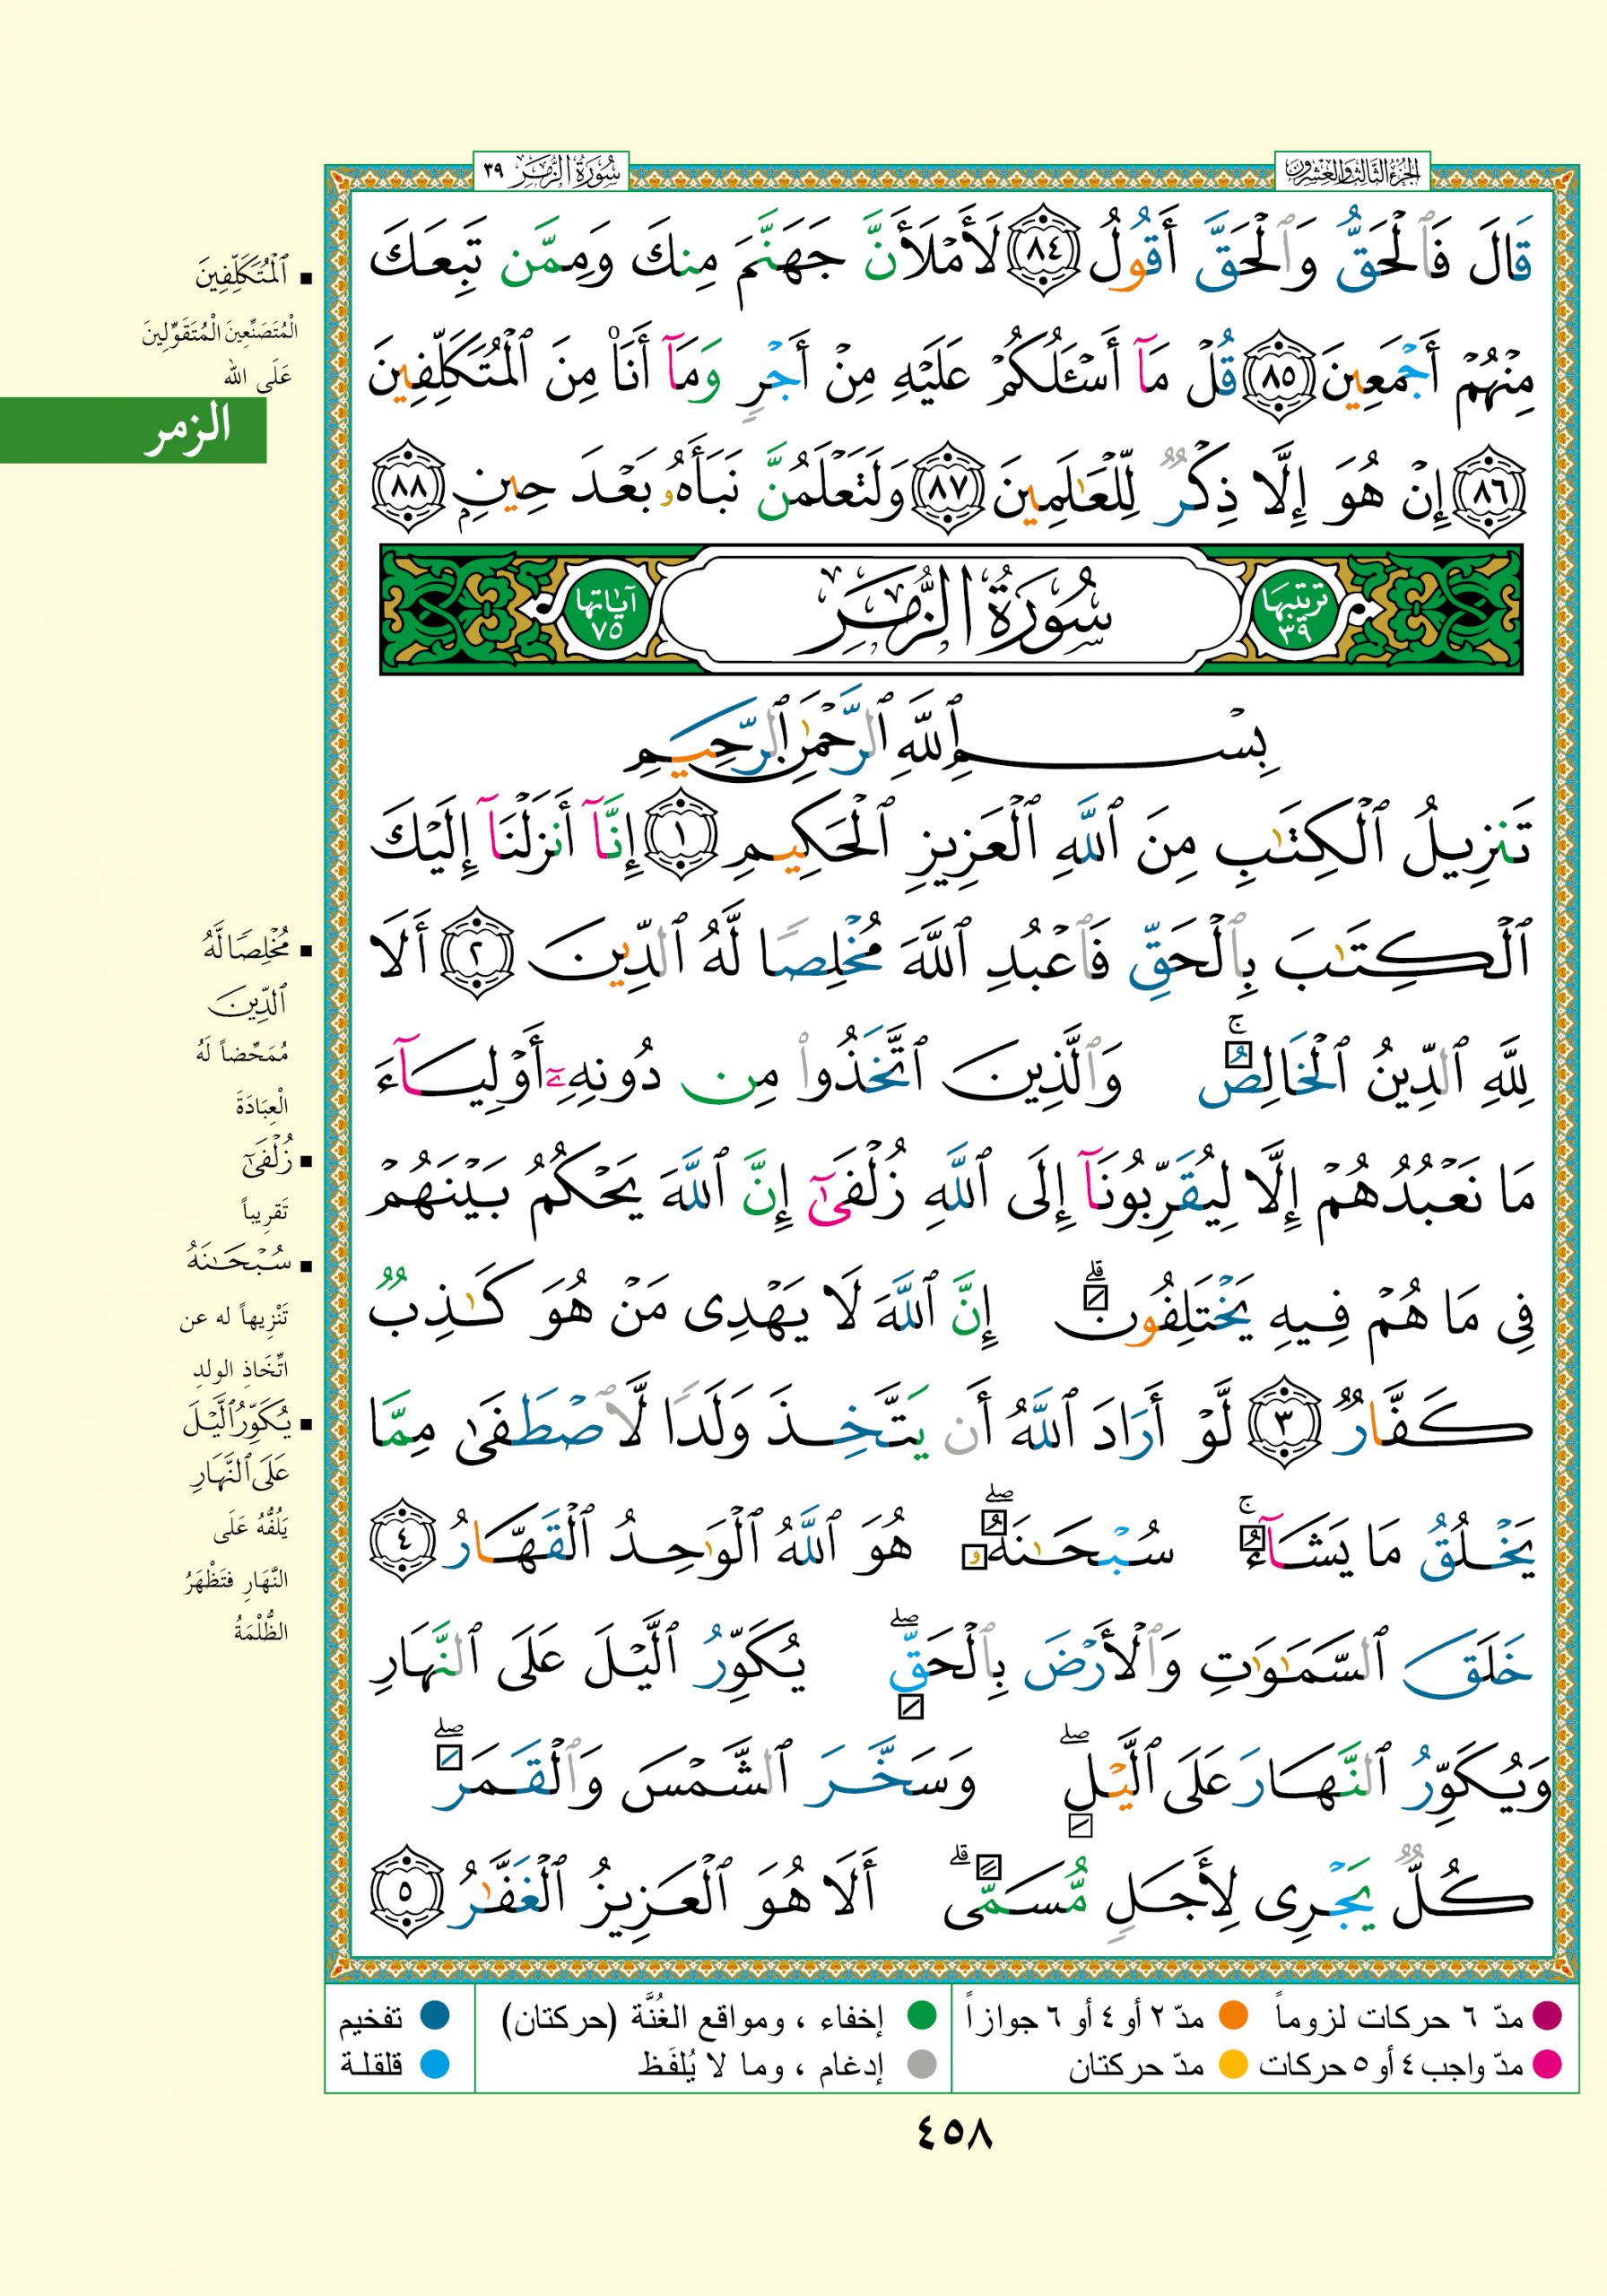 الجزء الثالث والعشرون
سُورَةُ الزُّمَر ٣٩
قَالَ فَٱلْحَقُّ وَٱلْحَقَّ أَقُولُ ٨٤ لَأَمْلَأَنَّ جَهَنَّمَ مِنكَ وَمِمَّن تَبِعَكَ
مِنْهُمْ أَجْمَعِينَ ٨٥ قُلْ مَآ أَسْـَٔلُكُمْ عَلَيْهِ مِنْ أَجْرٍ وَمَآ أَنَا۠ مِنَ ٱلْمُتَكَلِّفِينَ
٨٦ إِنْ هُوَ إِلَّا ذِكْرٌ لِّلْعَـٰلَمِينَ ٨٧ وَلَتَعْلَمُنَّ نَبَأَهُۥ بَعْدَ حِينٍۭ ٨٨
ترتيبها ٣٩ سُورَةُ الزُّمَر آياتها ٧٥
بِسْمِ ٱللَّهِ ٱلرَّحْمَـٰنِ ٱلرَّحِيمِ
تَنزِيلُ ٱلْكِتَـٰبِ مِنَ ٱللَّهِ ٱلْعَزِيزِ ٱلْحَكِيمِ ١ إِنَّآ أَنزَلْنَآ إِلَيْكَ
ٱلْكِتَـٰبَ بِٱلْحَقِّ فَٱعْبُدِ ٱللَّهَ مُخْلِصًا لَّهُ ٱلدِّينَ ٢ أَلَا
لِلَّهِ ٱلدِّينُ ٱلْخَالِصُ ۚ وَٱلَّذِينَ ٱتَّخَذُوا۟ مِن دُونِهِۦٓ أَوْلِيَآءَ
مَا نَعْبُدُهُمْ إِلَّا لِيُقَرِّبُونَآ إِلَى ٱللَّهِ زُلْفَىٰٓ إِنَّ ٱللَّهَ يَحْكُمُ بَيْنَهُمْ
فِى مَا هُمْ فِيهِ يَخْتَلِفُونَ ۗ إِنَّ ٱللَّهَ لَا يَهْدِى مَنْ هُوَ كَـٰذِبٌ
كَفَّارٌ ٣ لَّوْ أَرَادَ ٱللَّهُ أَن يَتَّخِذَ وَلَدًا لَّٱصْطَفَىٰ مِمَّا
يَخْلُقُ مَا يَشَآءُ ۚ سُبْحَـٰنَهُۥ ۖ هُوَ ٱللَّهُ ٱلْوَٰحِدُ ٱلْقَهَّارُ ٤
خَلَقَ ٱلسَّمَـٰوَٰتِ وَٱلْأَرْضَ بِٱلْحَقِّ ۖ يُكَوِّرُ ٱلَّيْلَ عَلَى ٱلنَّهَارِ
وَيُكَوِّرُ ٱلنَّهَارَ عَلَى ٱلَّيْلِ ۖ وَسَخَّرَ ٱلشَّمْسَ وَٱلْقَمَرَ ۖ
كُلٌّ يَجْرِى لِأَجَلٍ مُّسَمًّى ۗ أَلَا هُوَ ٱلْعَزِيزُ ٱلْغَفَّـٰرُ ٥
■ ٱلْمُتَكَلِّفِينَ
الْمُتَصَنِّعِينَ الْمُتَقَوِّلِينَ
عَلَى اللهِ
الزمر
■ مُخْلِصًا لَّهُ
ٱلدِّينَ
مُمَحِّضاً لَهُ
الْعِبَادَةَ
■ زُلْفَىٰٓ
تَقرِيباً
■ سُبْحَـٰنَهُ
تَنْزِيهاً له عن
اتِّخَاذِ الولدِ
■ يُكَوِّرُ ٱلَّيْلَ
عَلَى ٱلنَّهَارِ
يَلُفُّهُ عَلَى
النَّهَارِ فتَظْهَرُ
الظُّلْمَةُ
مدّ ٦ حركات لزوماً
مدّ ٢ أو ٤ أو ٦ جوازاً
إخفاء ، ومواقع الغُنَّة (حركتان)
تفخيم
مدّ واجب ٤ أو ٥ حركات
مدّ حركتان
إدغام ، وما لا يُلفَظ
قلقلة
٤٥٨